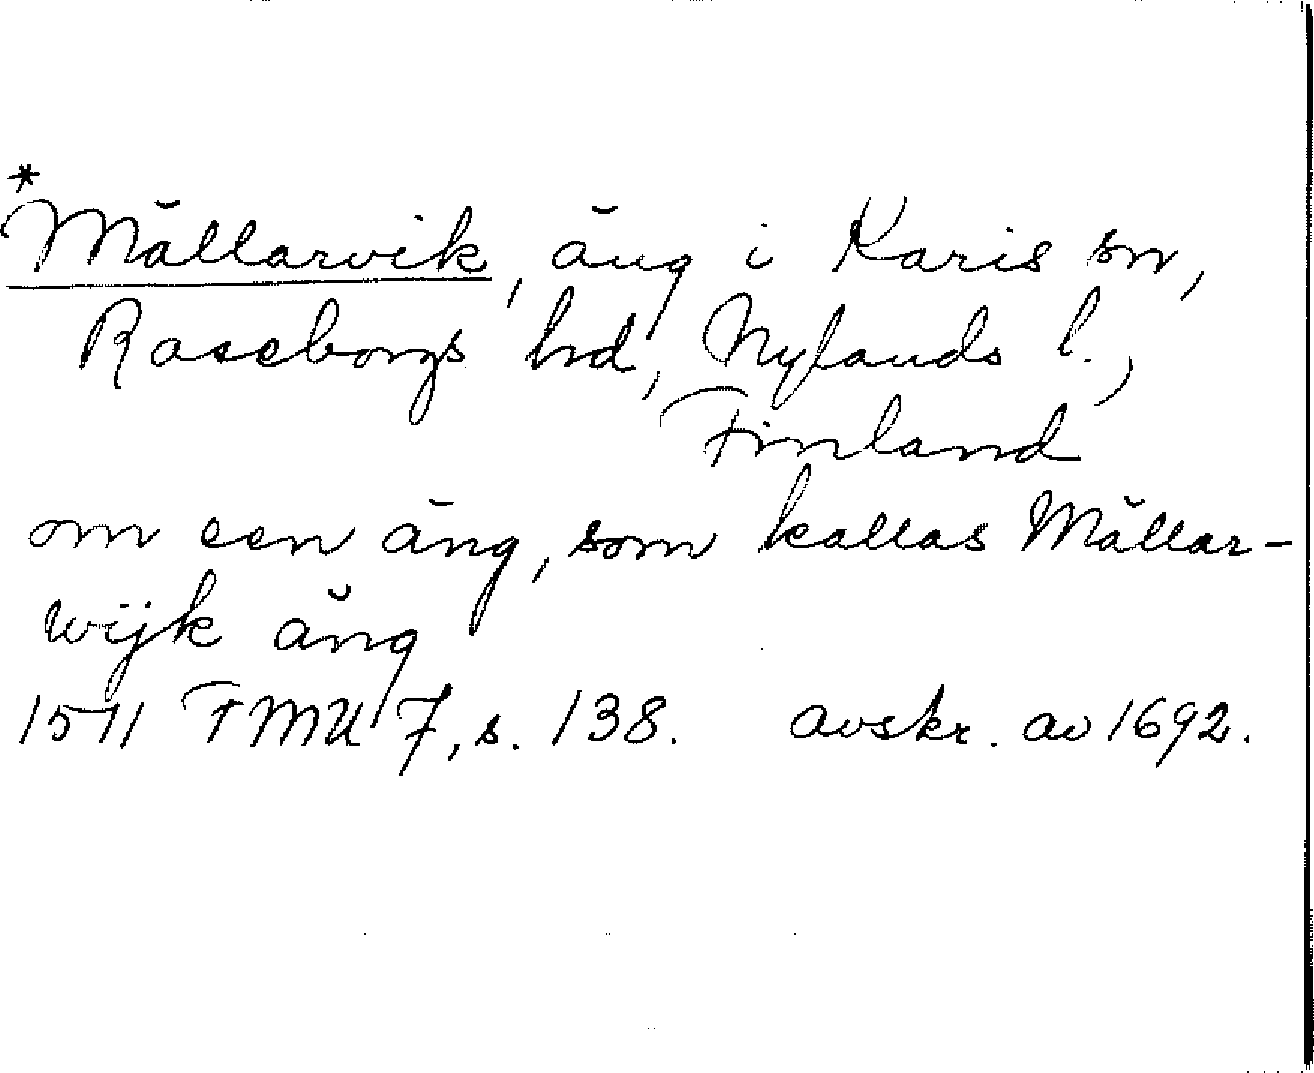 *
Mällarvik, äng i Karis sn,
Raseborgs hd, Nylands l.,
Finland
om een äng, som kallas Mällar-
wijk äng
1571 FMU 7, s. 138. avskr. av 1692.